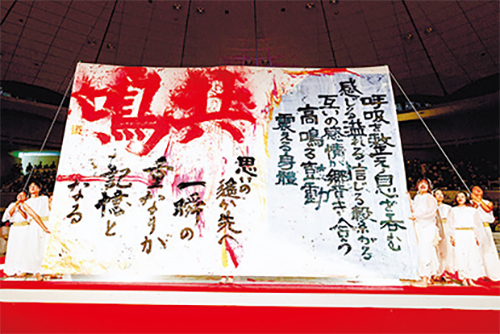 呼吸を整え息を呑む
感じる溢れる信じる繋がる
互いの感情が響き合う
高鳴る鼓動
震える身體
共鳴
思いの遥か先へ
一瞬の
重なりが
記憶と
なる